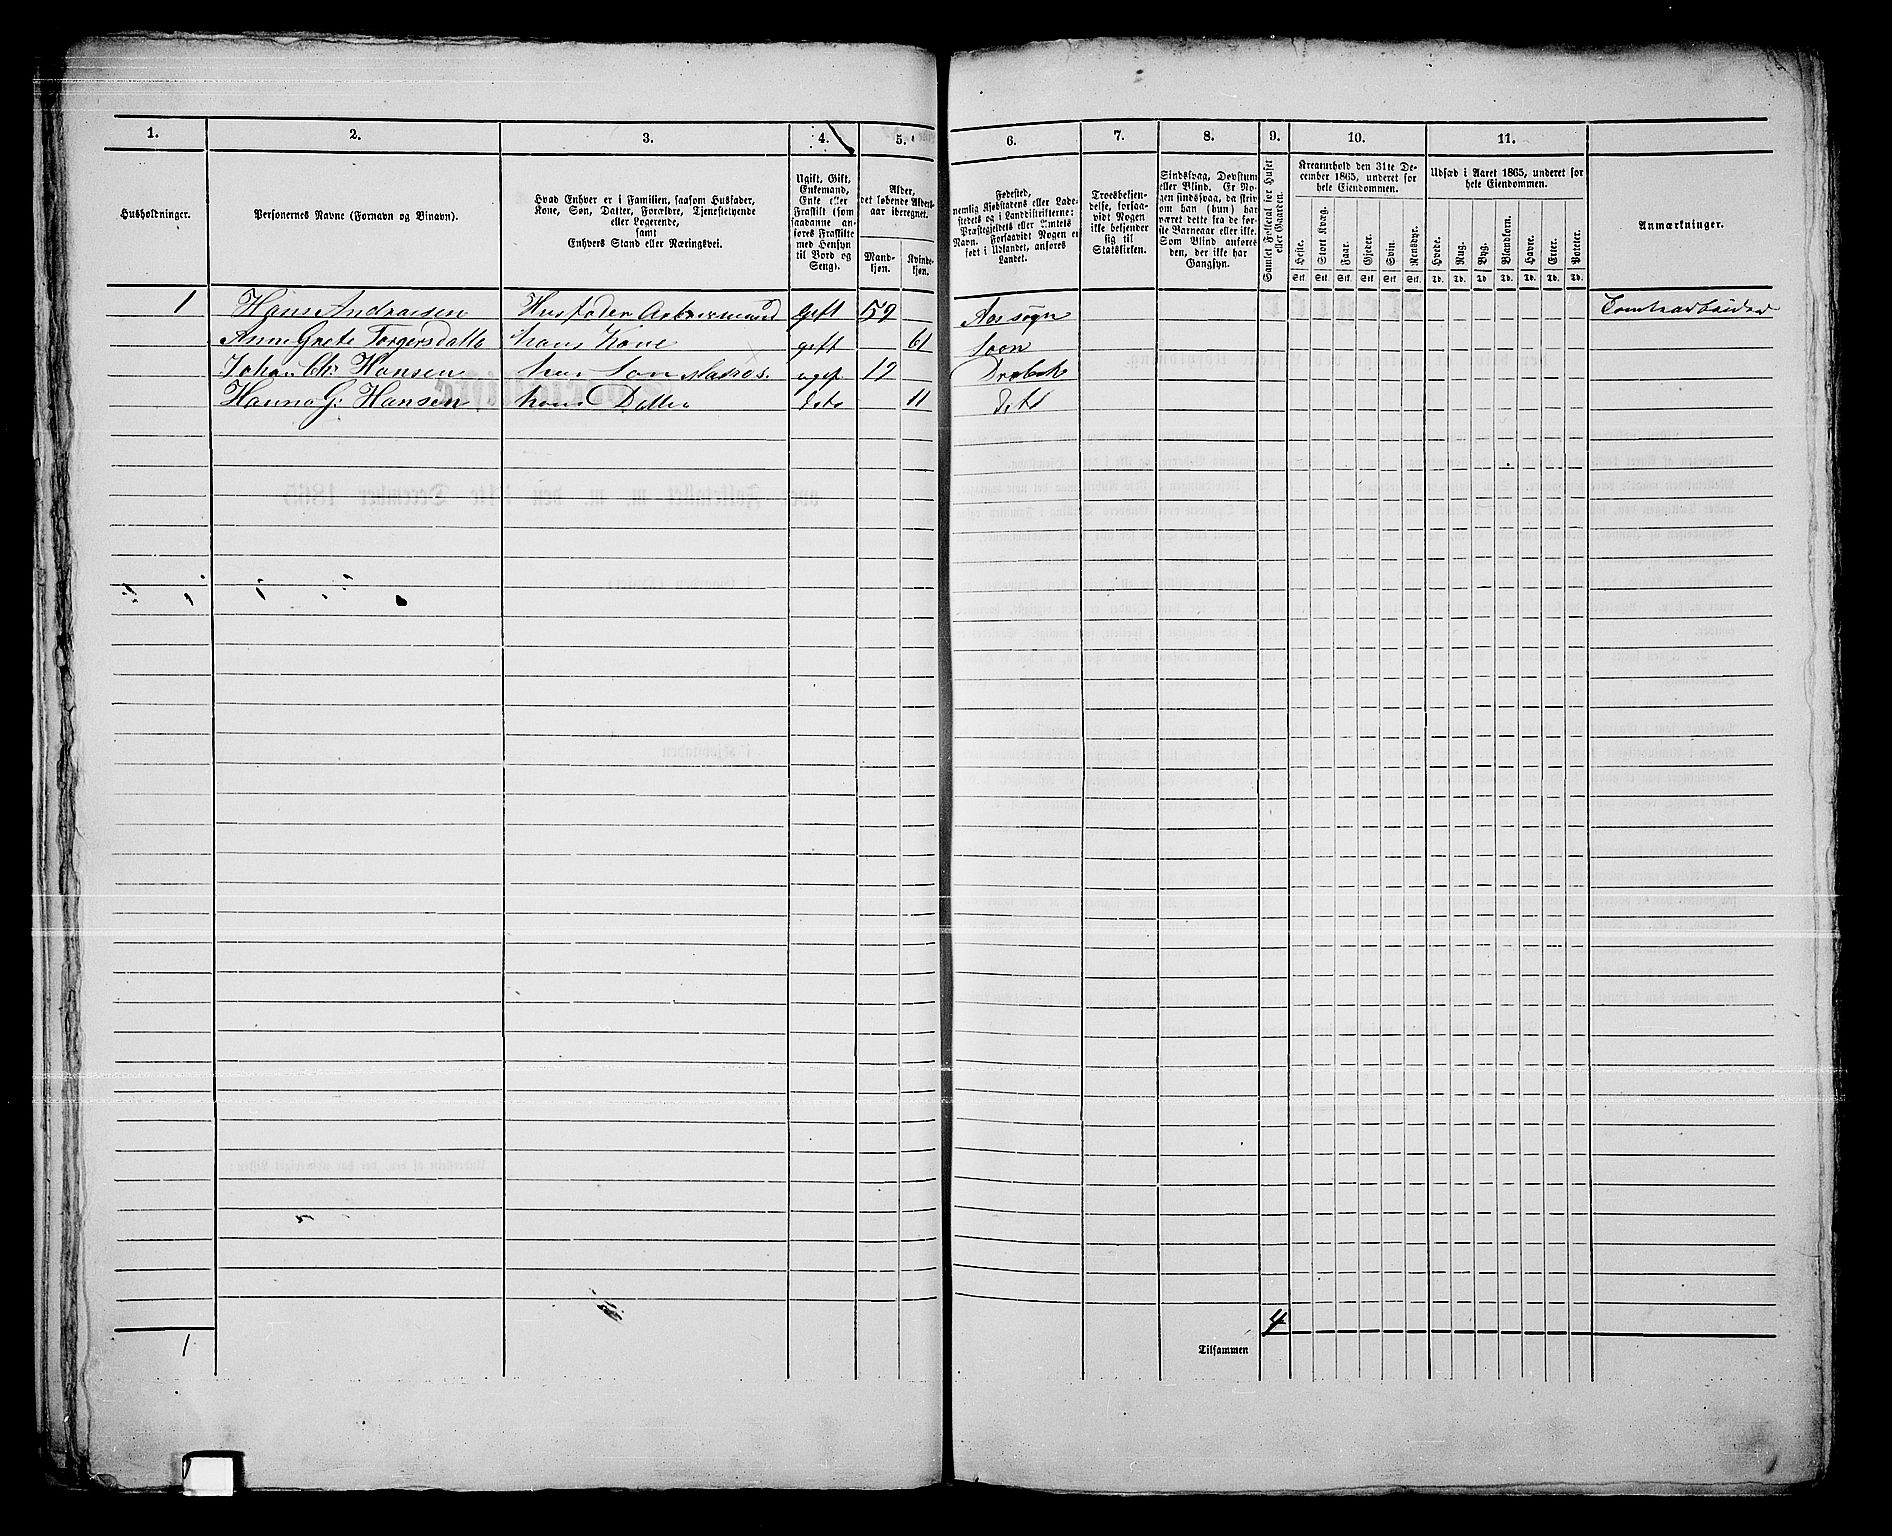 1. 2. 3. 4. 5. 6. 7. 8. 9. 10. 11.
Husholdninger.
Personernes Navne (Fornavn og Vinavn).
Hvad Enhver er i Familien, saasom Husfader,
Kone, Søn, Datter, Forældre, Tjenestetyende
eller Logerende,
samt
Enhvers Stand eller Næringsvei.
Ugift, Gift,
Enkemand,
Enke eller
Fraskilt (som
saadanne an-
føres Fraskilte
med Hensyn
til Bord og
Seng).
Alder,
det løbende Alders-
aar iberegnet.
Mand-
kjøn.
Kvinde-
kjøn.
Fødested,
nemlig Kjøbstadens eller Lade-
stedets og i Landdistrikterne:
Præstegjeldets eller Amtets
Navn. Forsaavidt Nogen er
født i Udlandet, anføres
Landet.
Troesbekjen-
delse, forsaa-
vidt Nogen
ikke bekjender
sig til
Statskirken.
Sindssvag, Døvstum
eller Blind. Er No-
gen sindssvag, da skriv
om han (hun) har
været dette fra de før-
ste Barneaar eller ikke.
Som Blind anføres
den, der ikke har
Gangsyn.
Samlet Folketal for Huset
eller Gaarden.
Kreaturhold den 31te De-
cember 1865, underet for
hele Eiendommen.
Heste. Stort Kvæg. Faar. Gjeder. Svin. Rensdyr.
Stk. Stk. Stk. Stk. Stk. Stk.
Udsæd i Aaret 1865, underet for
hele Eiendommen.
Hvede. Rug. Byg. Blandkorn. Havre. Erter. Poteter.
Td. Td. Td. Td. Td. Td. Td.
Anmærkninger.
1 Hans Andraesen gift 59 Aas sogn
Anne Grete Torgersdatte hans Kone gift 61 Soon
Johan Chr. Hansen Søn Matros. ugif 19 Drøbak
Hanna G: Hansen hans Datter dito 11 dito
4
1
Tilsammen